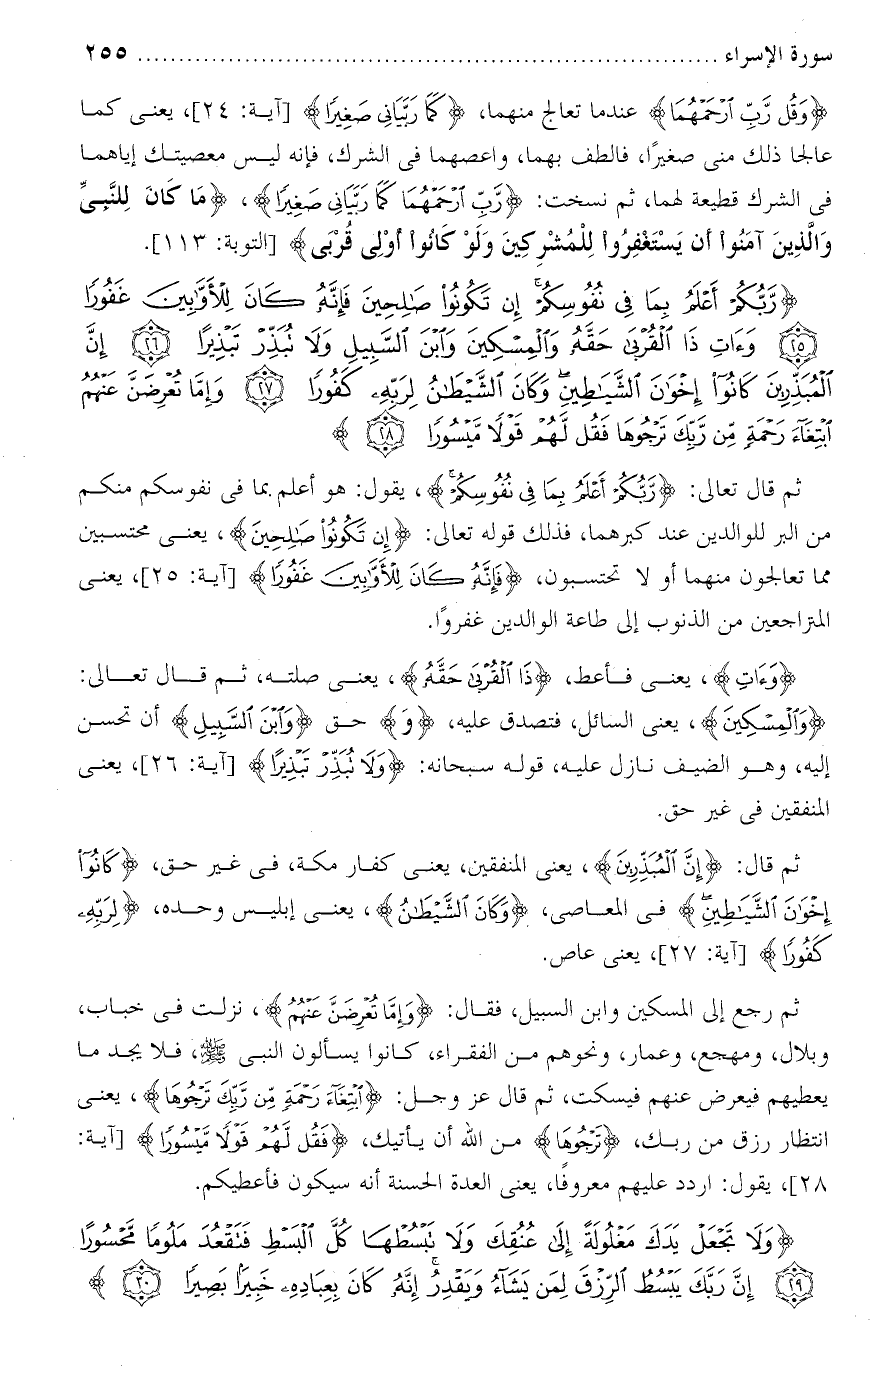 سورة الإسراء ........................................................................ ٢٥٥
﴿وَقُل رَّبِّ ٱرْحَمْهُمَا﴾ عندما تعالج منهما، ﴿كَمَا رَبَّيَانِى صَغِيرًا﴾ [آية: ٢٤]، يعنى كما
عالجا ذلك منى صغيرًا، فالطف بهما، واعصهما فى الشرك، فإنه ليس معصيتك إياهما
فى الشرك قطيعة لهما، ثم نسخت: ﴿رَّبِّ ٱرْحَمْهُمَا كَمَا رَبَّيَانِى صَغِيرًا﴾، ﴿مَا كَانَ لِلنَّبِىِّ
وَالَّذِينَ آمَنُواْ أَن يَسْتَغْفِرُواْ لِلْمُشْرِكِينَ وَلَوْ كَانُواْ أُوْلِى قُرْبَى﴾ [التوبة: ١١٣].
﴿رَّبُّكُمْ أَعْلَمُ بِمَا فِى نُفُوسِكُمْ ۚ إِن تَكُونُوا۟ صَٰلِحِينَ فَإِنَّهُۥ كَانَ لِلْأَوَّٰبِينَ غَفُورًا
۝٢٥ وَءَاتِ ذَا ٱلْقُرْبَىٰ حَقَّهُۥ وَٱلْمِسْكِينَ وَٱبْنَ ٱلسَّبِيلِ وَلَا تُبَذِّرْ تَبْذِيرًا ۝٢٦ إِنَّ
ٱلْمُبَذِّرِينَ كَانُوٓا۟ إِخْوَٰنَ ٱلشَّيَٰطِينِ ۖ وَكَانَ ٱلشَّيْطَٰنُ لِرَبِّهِۦ كَفُورًا ۝٢٧ وَإِمَّا تُعْرِضَنَّ عَنْهُمُ
ٱبْتِغَآءَ رَحْمَةٍ مِّن رَّبِّكَ تَرْجُوهَا فَقُل لَّهُمْ قَوْلًا مَّيْسُورًا ۝٢٨ ﴾
ثم قال تعالى: ﴿رَّبُّكُمْ أَعْلَمُ بِمَا فِى نُفُوسِكُمْ ۚ﴾، يقول: هو أعلم بما فى نفوسكم منكم
من البر للوالدين عند كبرهما، فذلك قوله تعالى: ﴿إِن تَكُونُوا۟ صَٰلِحِينَ﴾، يعنى محتسبين
مما تعالجون منهما أو لا تحتسبون، ﴿فَإِنَّهُۥ كَانَ لِلْأَوَّٰبِينَ غَفُورًا﴾ [آية: ٢٥]، يعنى
المتراجعين من الذنوب إلى طاعة الوالدين غفروًا.
﴿وَءَاتِ﴾، يعنى فأعط، ﴿ذَا ٱلْقُرْبَىٰ حَقَّهُۥ﴾، يعنى صلته، ثم قال تعالى:
﴿وَٱلْمِسْكِينَ﴾، يعنى السائل، فتصدق عليه، ﴿وَ﴾ حق ﴿وَٱبْنَ ٱلسَّبِيلِ﴾ أن تحسن
إليه، وهو الضيف نازل عليه، قوله سبحانه: ﴿وَلَا تُبَذِّرْ تَبْذِيرًا﴾ [آية: ٢٦]، يعنى
المنفقين فى غير حق.
ثم قال: ﴿إِنَّ ٱلْمُبَذِّرِينَ﴾، يعنى المنفقين، يعنى كفار مكة، فى غير حق، ﴿كَانُوٓا۟
إِخْوَٰنَ ٱلشَّيَٰطِينِ ۖ﴾ فى المعاصى، ﴿وَكَانَ ٱلشَّيْطَٰنُ﴾، يعنى إبليس وحده، ﴿لِرَبِّهِۦ
كَفُورًا﴾ [آية: ٢٧]، يعنى عاص.
ثم رجع إلى المسكين وابن السبيل، فقال: ﴿وَإِمَّا تُعْرِضَنَّ عَنْهُمُ﴾، نزلت فى خباب،
وبلال، ومهجع، وعمار، ونحوهم من الفقراء، كانوا يسألون النبى ﷺ، فلا يجد ما
يعطيهم فيعرض عنهم فيسكت، ثم قال عز وجل: ﴿ٱبْتِغَآءَ رَحْمَةٍ مِّن رَّبِّكَ تَرْجُوهَا﴾، يعنى
انتظار رزق من ربك، ﴿تَرْجُوهَا﴾ من الله أن يأتيك، ﴿فَقُل لَّهُمْ قَوْلًا مَّيْسُورًا﴾ [آية:
٢٨]، يقول: اردد عليهم معروفًا، يعنى العدة الحسنة أنه سيكون فأعطيكم.
﴿وَلَا تَجْعَلْ يَدَكَ مَغْلُولَةً إِلَىٰ عُنُقِكَ وَلَا تَبْسُطْهَا كُلَّ ٱلْبَسْطِ فَتَقْعُدَ مَلُومًا مَّحْسُورًا
۝٢٩ إِنَّ رَبَّكَ يَبْسُطُ ٱلرِّزْقَ لِمَن يَشَآءُ وَيَقْدِرُ ۚ إِنَّهُۥ كَانَ بِعِبَادِهِۦ خَبِيرًۢا بَصِيرًا ۝٣٠ ﴾